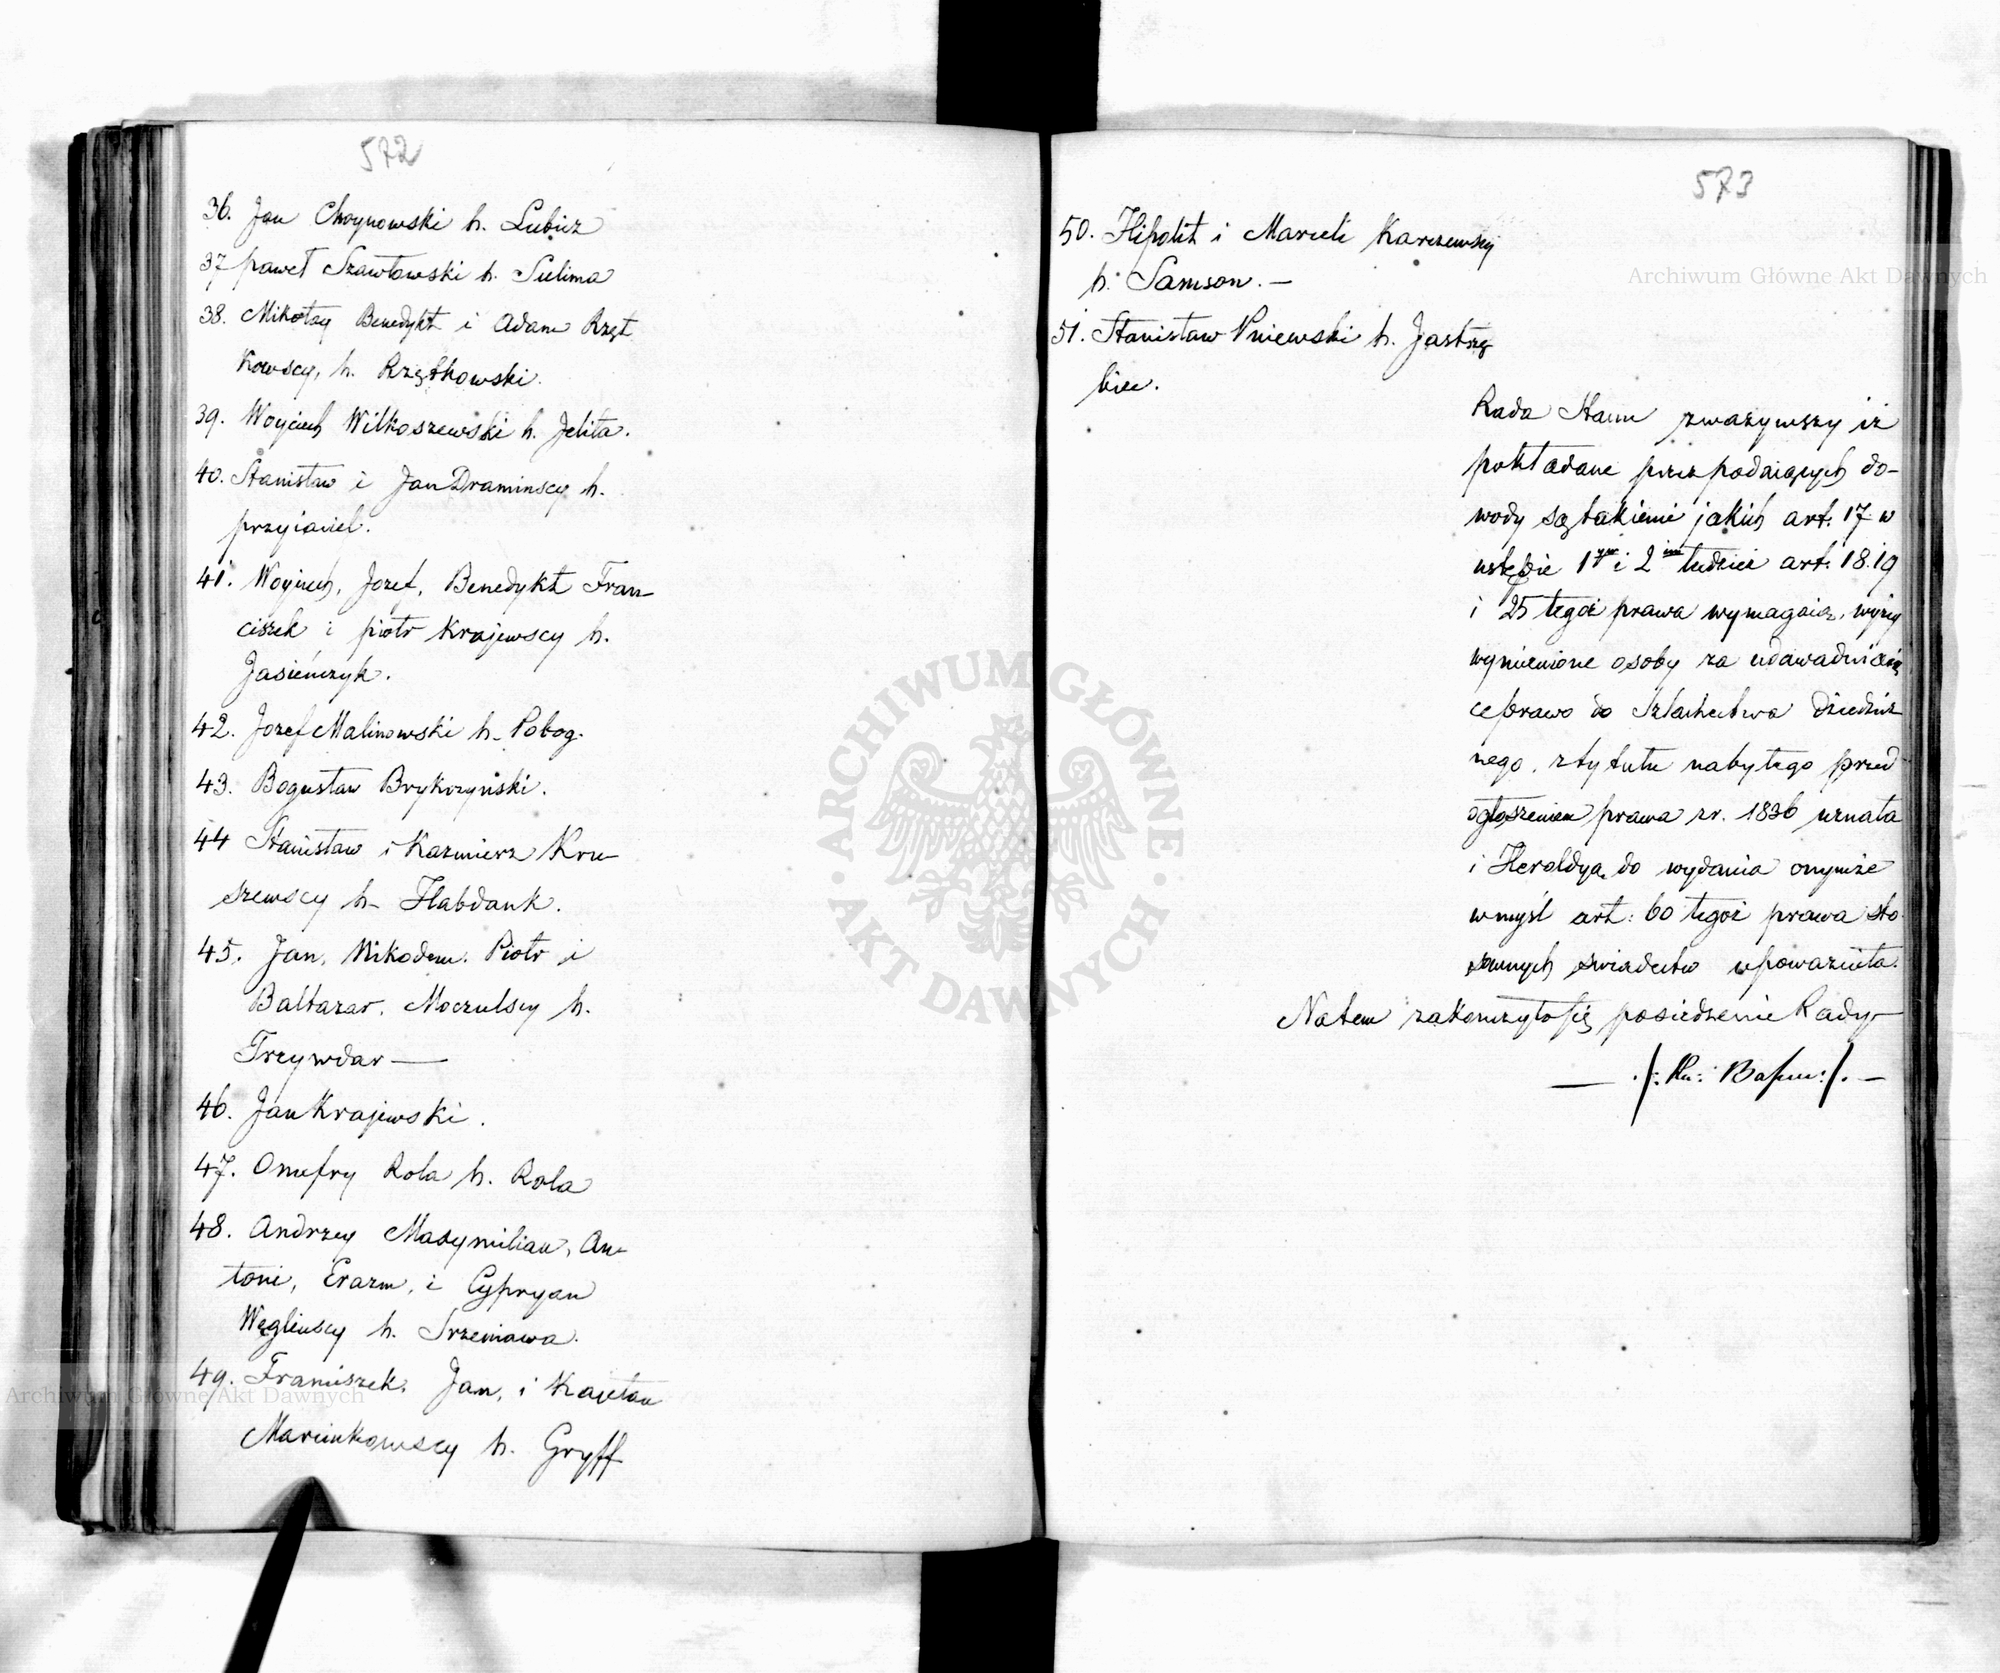 572
36. Jan Choynowski h. Lubicz
37 paweł Szawłowski h. Sulima
38. Mikołay Benedykt i Adam Rzęt
kowscy, h. Rzętkowski.
39. Woyciech Wilkoszewski h. Jelita.
40. Stanisław i Jan Draminscy h.
przyiaciel.
41. Woyciech, Jozef, Benedykt Fran
ciszek i piotr Krajewscy h.
Jasieńczyk.
42. Jozef Malinowski h. Pobog.
43. Bogusław Brykczyński.
44 Stanisław i Kazmierz Kru-
szewscy h. Habdank.
45. Jan, Nikodem. Piotr i
Baltazar, Moczulscy h.
Trzywdar —
46. Jan Krajewski.
47. Onufry Rola h. Rola
48. Andrzey Maxymilian, An-
toni, Erazm, i Cypryan
Węglenscy h. Srzeniawa.
49. Franciszek, Jan, i Kajetan
Marcinkowscy h. Gryff
573
50. Hipolit i Marceli Karczewscy
h. Samson. —
51. Stanisław Pniewski h. Jastrzę
biec.
Rada Stanu zważywszy iż
pokładane przez podaiących do-
wody są takiemi jakich art. 17 w
ustępie 1ym i 2im tudzież art. 18. 19
i 25 tegoż prawa wymagaią, wyżey
wymienione osoby za udowadniaią
ce prawo do Szlachectwa dziedzicz
nego, z tytułu nabytego przed
ogłoszeniem prawa z r. 1836 uznała
i Heroldyą do wydania onymże
w myśl art: 60 tegoż prawa sto
sownych swiadectw upoważniła.
Na tem zakonczyło się posiedzenie Rady
ARCHIWUM GŁÓWNE AKT DAWNYCH
Archiwum Główne Akt Dawnych
Archiwum Główne Akt Dawnych